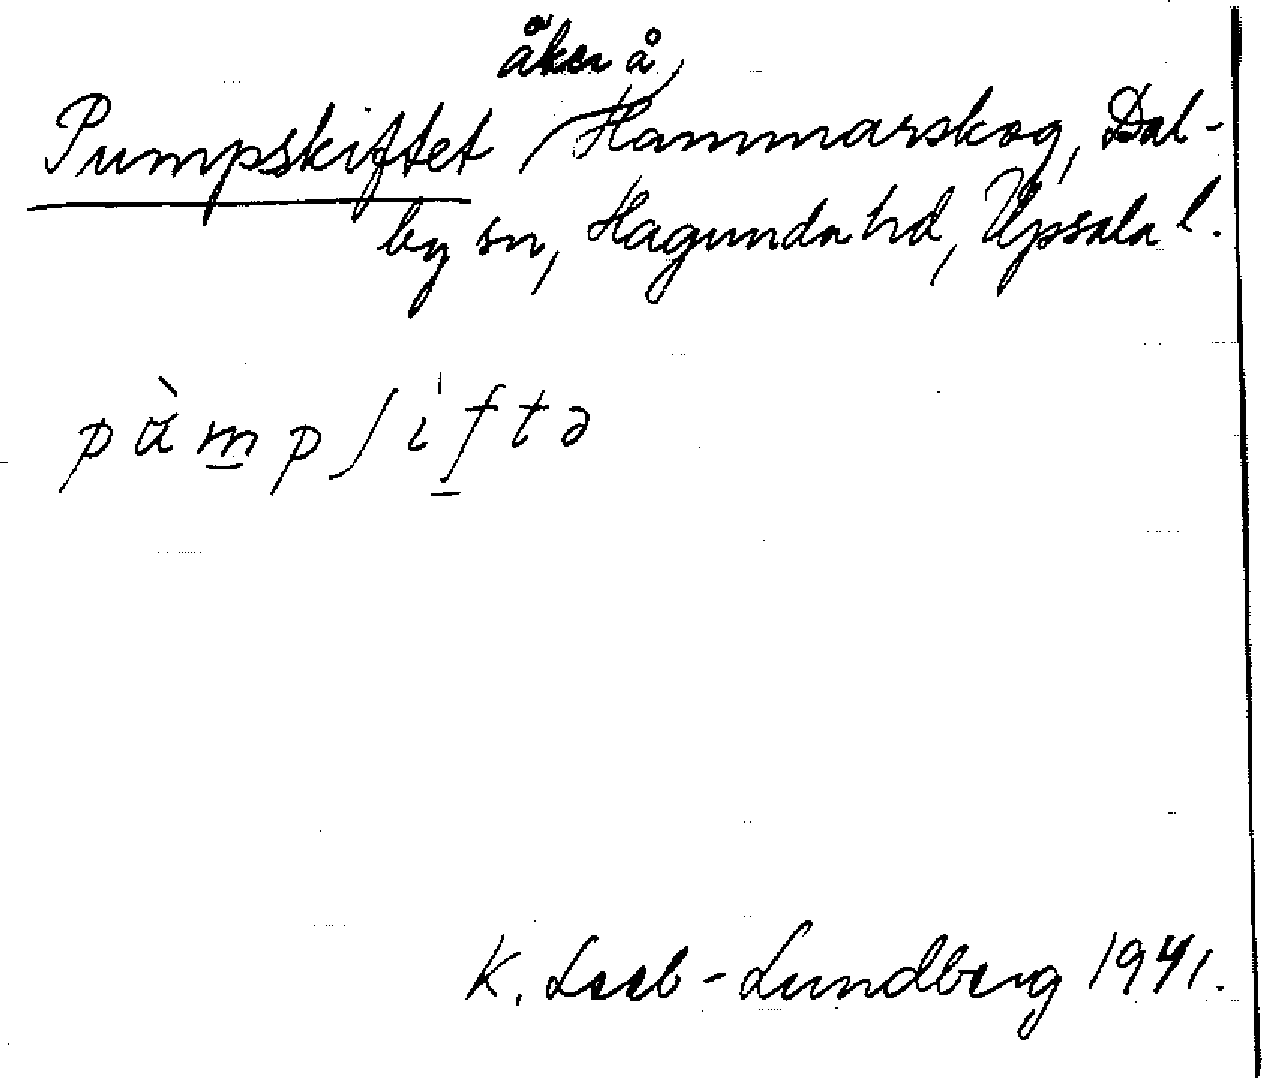 åker å
Pumpskiftet / Hammarskog, Dal-
by sn, Hagunda hd, Upsala l.
K. Leeb-Lundberg 1941.